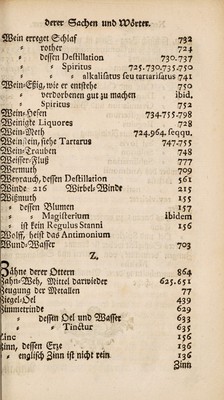 derer Sachen und Wörter.
Wein erreget Schlaf 732
" rother 724
" dessen Destillation 730.737
" " Spiritus 725.730.735.750
" " " alkalisatus seu tartarisatus 741
Wein-Eßig, wie er entstehe 750
" verdorbenen gut zu machen ibid.
" " Spiritus 752
Wein-Hefen 734.755.798
Weinigte Liquores 728
Wein-Meth 724.964.seqqu.
Weinstein, siehe Tartarus 747.755
Wein-Trauben 748
Weisser-Fluß 777
Wermuth 709
Weyrauch, dessen Destillation 561
Winde 216 Wirbel-Winde 215
Wißmuth 155
" dessen Blumen 157
" " Magisterium ibidem
" ist kein Regulus Stanni 156
Wolff, heist das Antimonium
Wund-Wasser 703
Z.
Zähne derer Ottern 864
Zahn-Weh, Mittel darwieder 625.651
Zeugung der Metallen 77
Ziegel-Oel 439
Zimmetrinde 629
" dessen Oel und Wasser 633
" " Tinctur 635
Zinc 156
Zinn, dessen Erze 136
" englisch Zinn ist nicht rein 136
Zinn